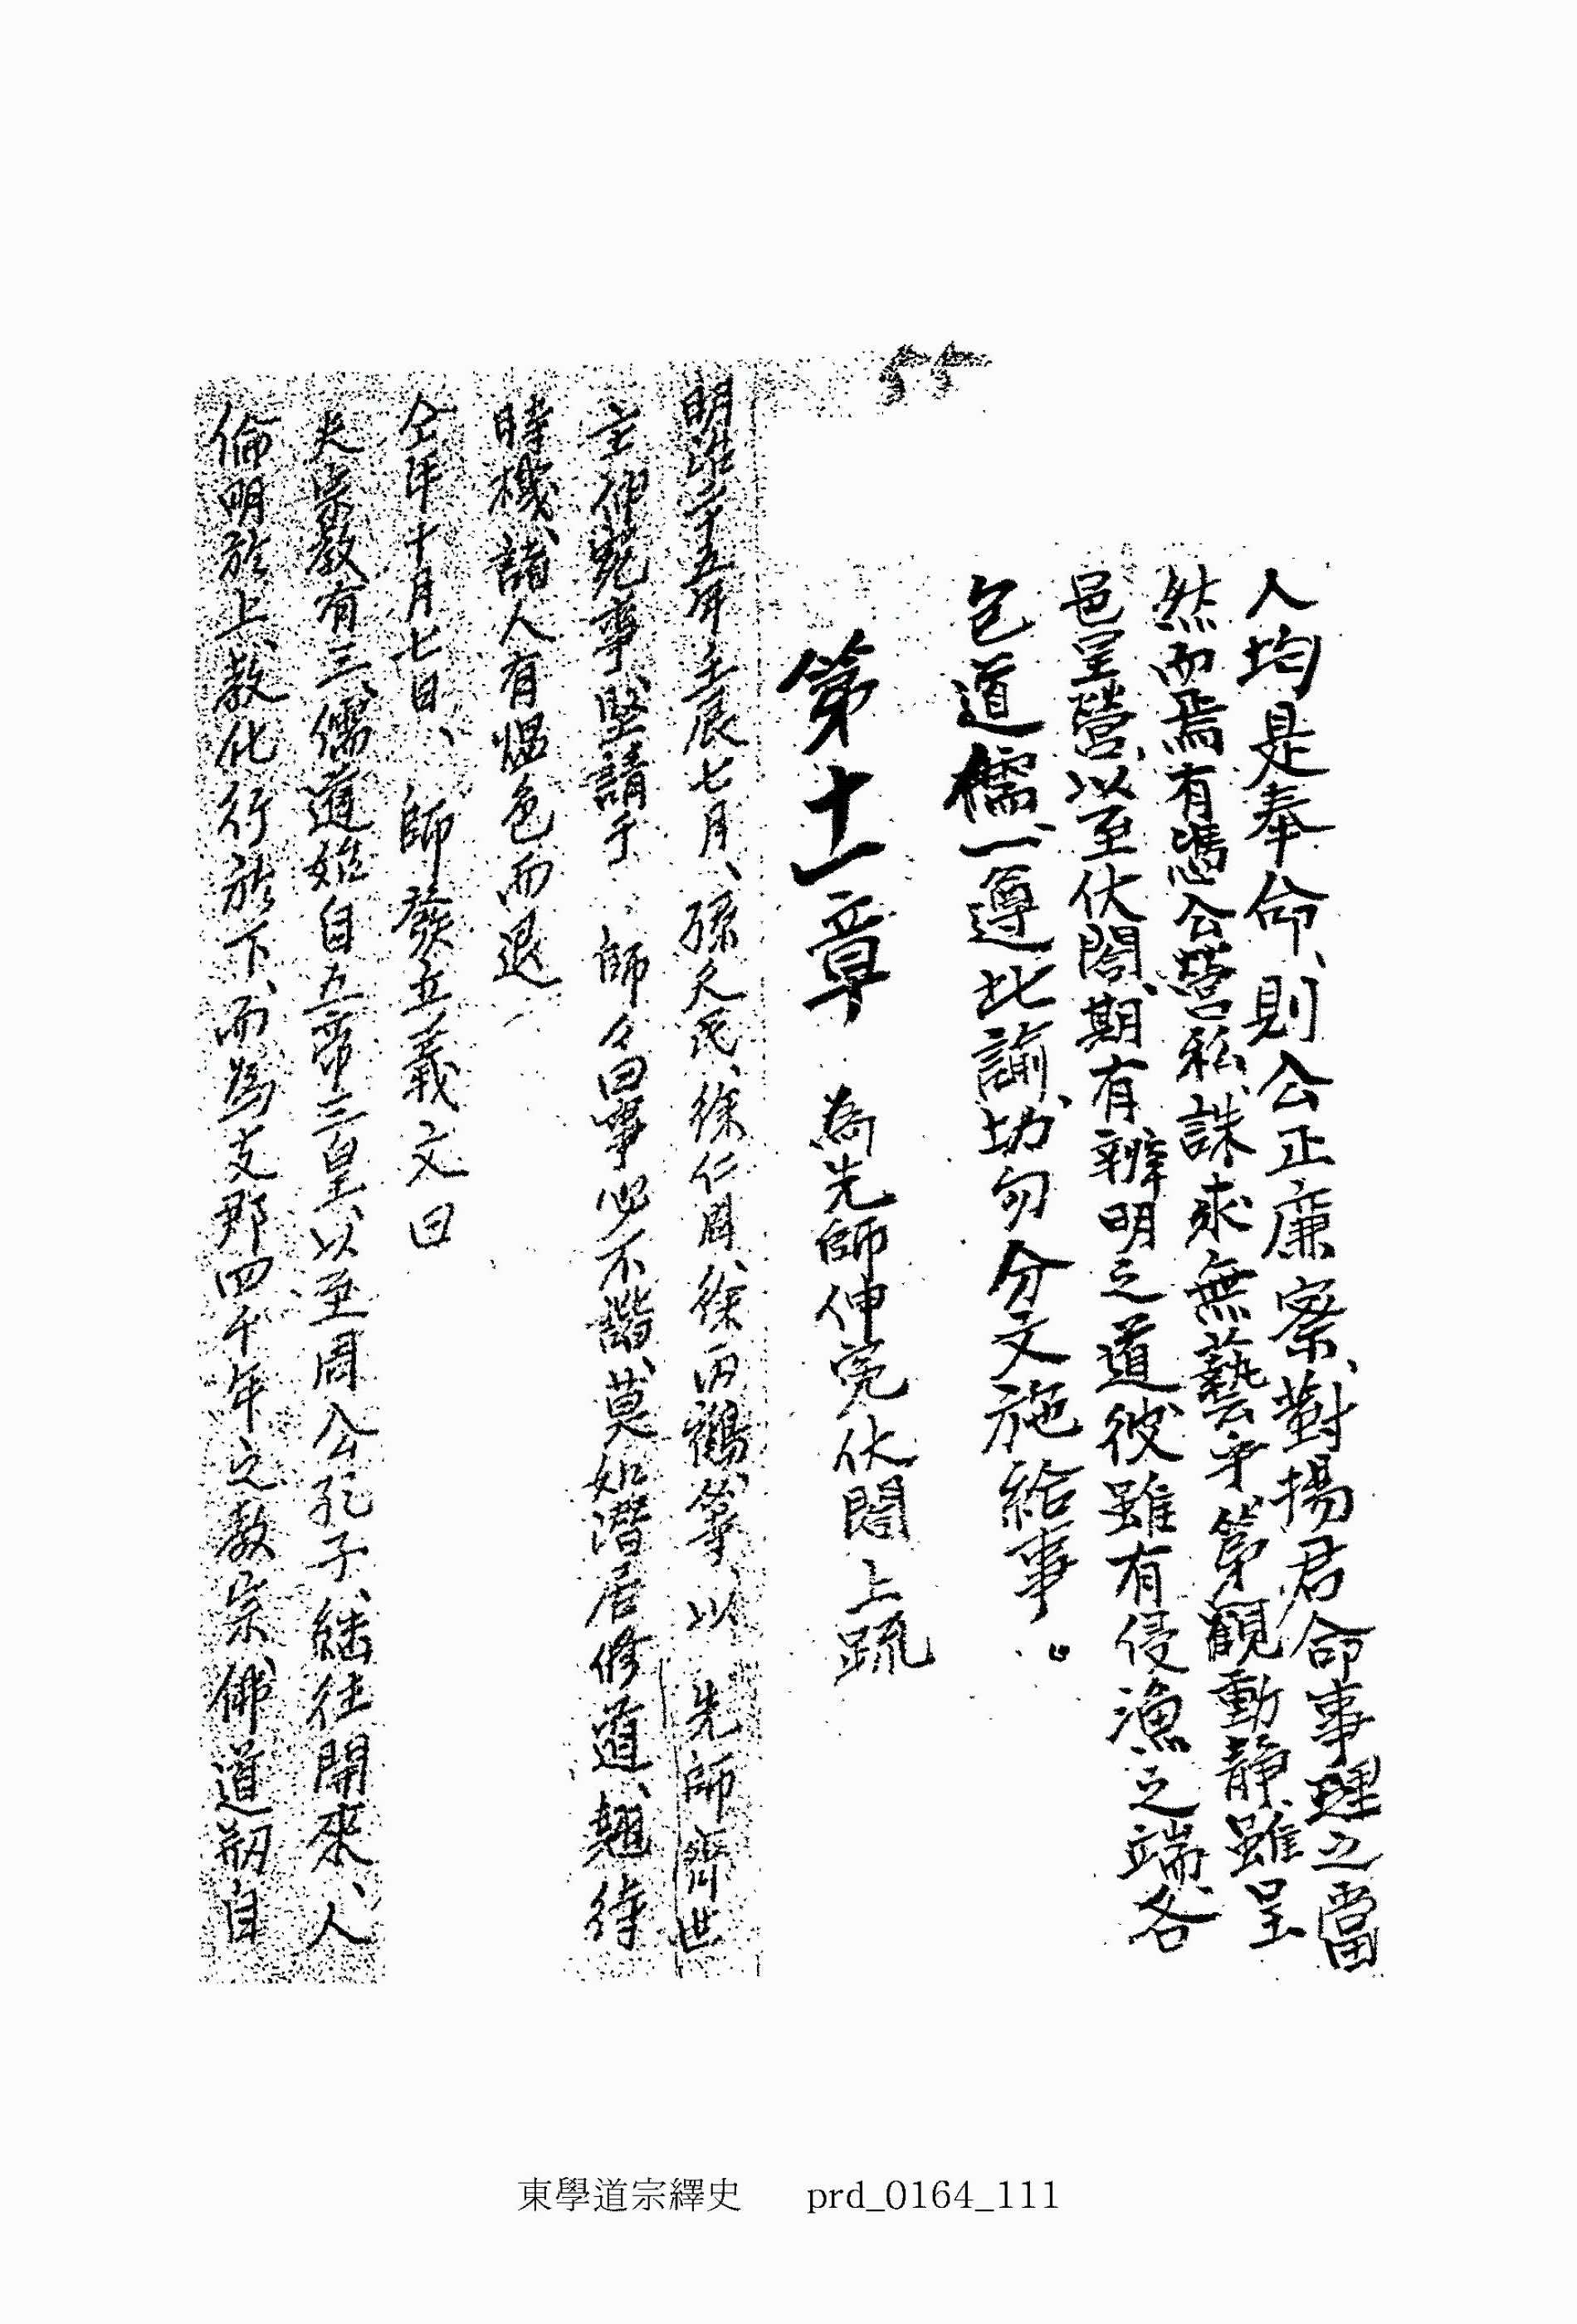 55
人均是奉命、則公正廉察、對揚君命事理之當
然而焉有憑公營私、誅求無藝乎、第觀動靜、雖呈
邑呈營、以至伏閤、期有辨明之道彼雖有侵漁之端各
包道儒、一遵此諭、切勿分文施給事。
第十一章 爲先師伸寃伏閤上疏
明治二十五年壬辰七月、孫久民、徐仁周、徐丙鶴等、以 先師濟世
主伸寃事、堅請于 師々曰事必不諧、莫如潛居修道、翹待
時機、諸人有慍色而退
仝年十月七日、 師發立義文曰
夫宗敎有三、儒道始自五帝三皇、以至周公孔子、繼往開來、人
倫明於上、敎化行於下、而爲支那四千年之敎宗、佛道刱自
東學道宗繹史 prd_0164_111